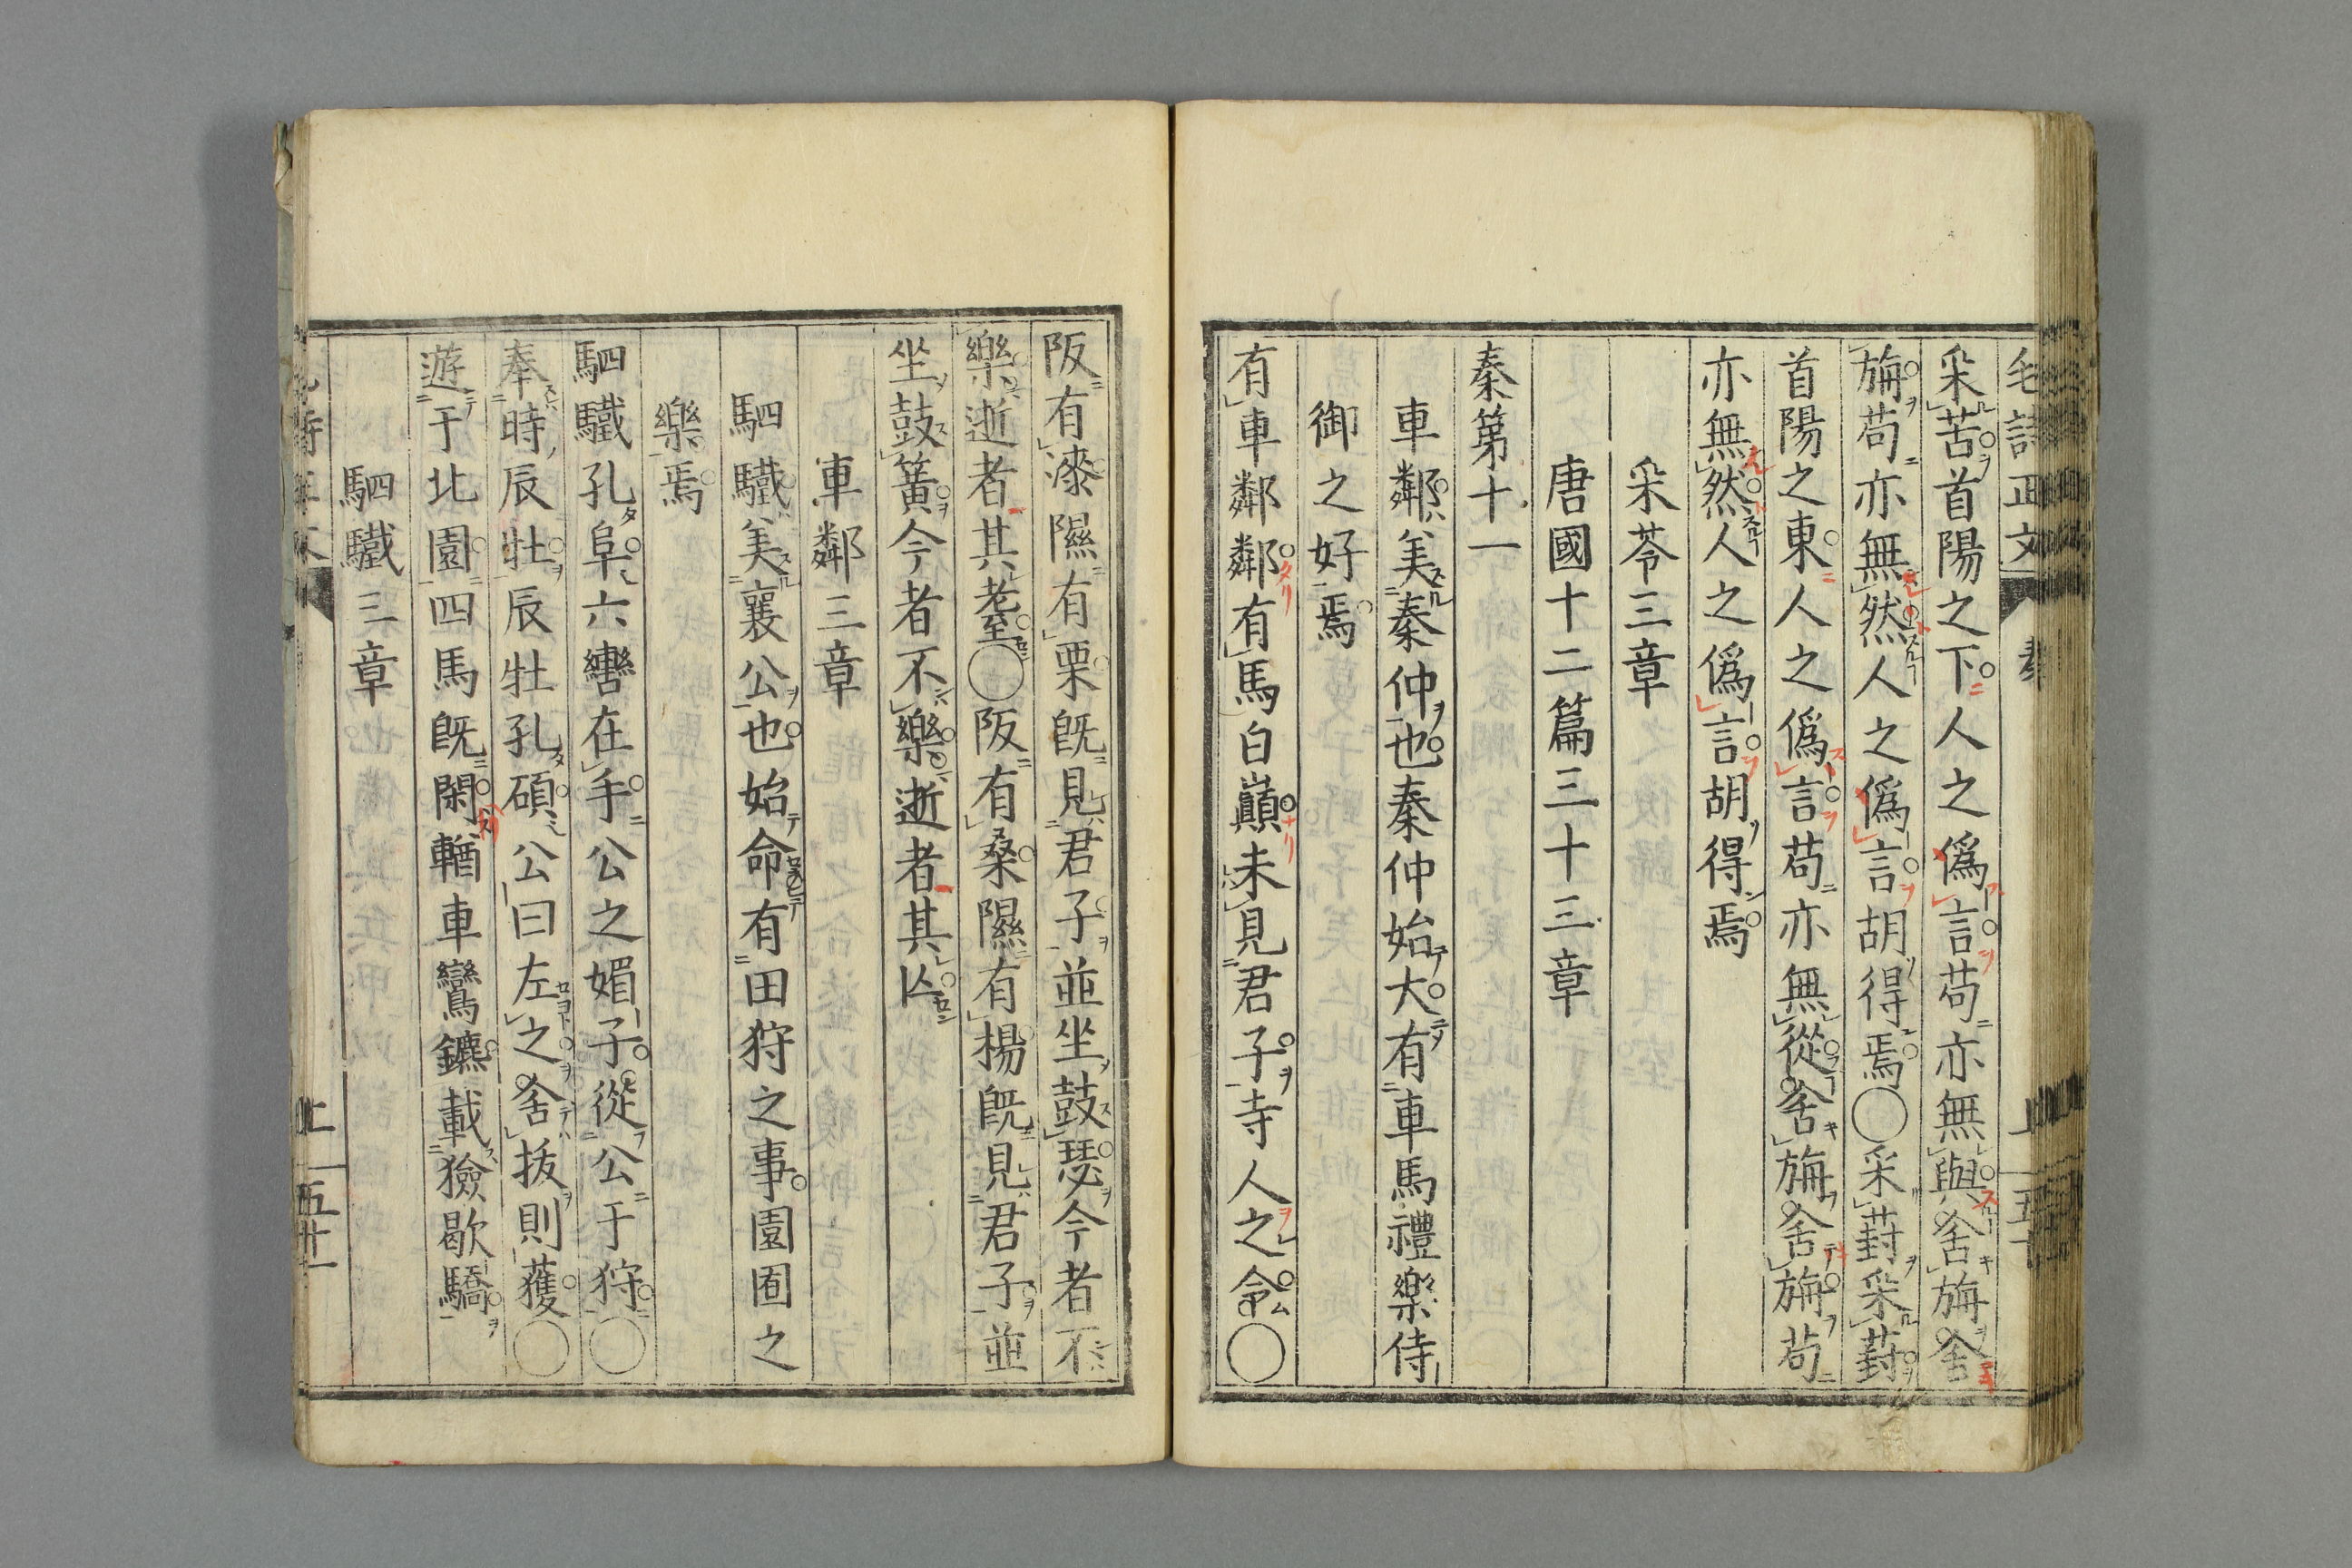 毛詩正文
采苦首陽之下人之僞言苟亦無與舍旃舍
旃苟亦無然人之僞言胡得焉○采葑采葑
首陽之東人之僞言苟亦無從舍旃舍旃苟
亦無然人之僞言胡得焉
采苓三章
唐國十二篇三十三章
秦第十一
車鄰美秦仲也秦仲始大有車馬禮樂侍
御之好焉
有車鄰鄰有馬白巓未見君子寺人之令○
阪有漆隰有栗旣見君子並坐鼓瑟今者不
樂逝者其耋○阪有桑隰有楊旣見君子並
坐鼓簧今者不樂逝者其亾
車鄰三章
駟驖美襄公也始命有田狩之事園囿之
樂焉
駟驖孔阜六轡在手公之媚子從公于狩○
奉時辰牡辰牡孔碩公曰左之舍拔則獲○
遊于北園四馬旣閑輶車鸞鑣載獫歇驕
駟驖三章
上 五十一